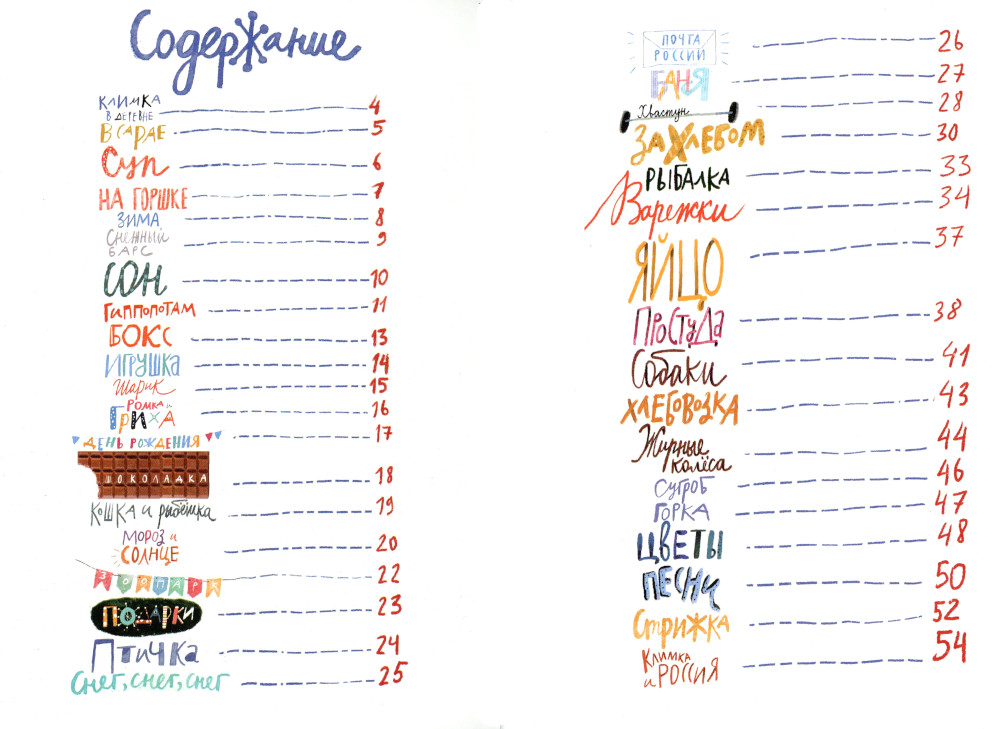 Содержание
КЛИМКА
В ДЕРЕВНЕ 4
В САРАЕ 5
Суп 6
НА ГОРШКЕ 7
ЗИМА 8
Снежный
БАРС 9
СОН 10
ГИППОПОТАМ 11
БОКС 13
ИГРУШКА 14
Шарик 15
РОМКА и
ГРИХА 16
ДЕНЬ РОЖДЕНИЯ 17
ШОКОЛАДКА 18
КОШКА и рыбёшка 19
МОРОЗ и
СОЛНЦЕ 20
ЗООПАРК 22
ПОДАРКИ 23
ПТИЧКА 24
Снег, снег, снег 25
ПОЧТА
РОССИИ 26
БАНЯ 27
Хвастун 28
ЗА ХЛЕБОМ 30
РЫБАЛКА 33
Варежки 34
ЯЙЦО 37
ПРОСТУДА 38
Собаки 41
ХЛЕБОВОЗКА 43
Жирные
колёса 44
Сугроб 46
ГОРКА 47
ЦВЕТЫ 48
ПЕСНИ 50
СТРИЖКА 52
КЛИМКА
и РОССИЯ 54